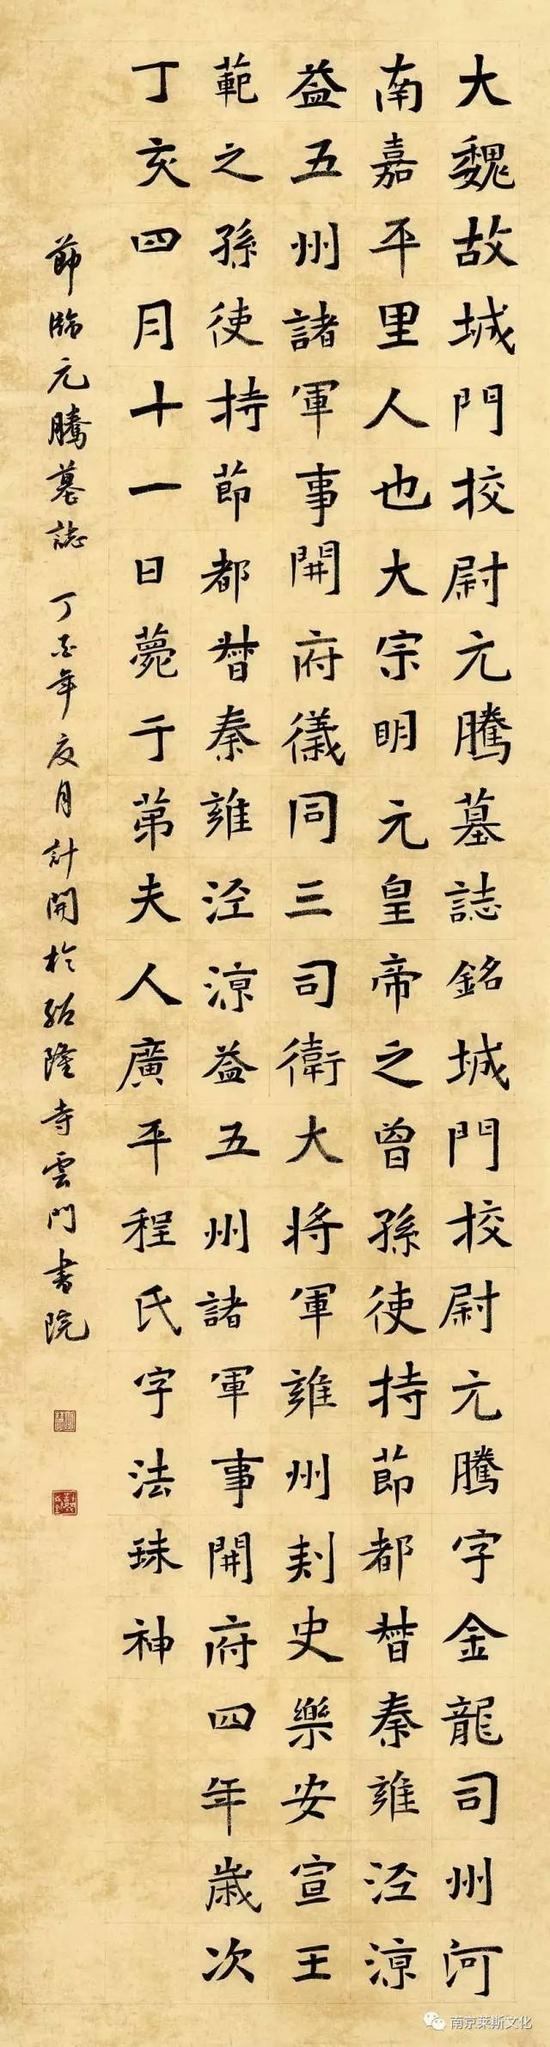 大魏故城門校尉元騰墓誌銘城門校尉元騰字金龍司州河
南嘉平里人也大宗明元皇帝之曾孫使持節都督秦雍涇涼
益五州諸軍事開府儀同三司衛大將軍雍州刺史樂安宣王
範之孫使持節都督秦雍涇涼益五州諸軍事開府四年歲次
丁亥四月十一日薨于第夫人廣平程氏字法珠神
節臨元騰墓誌 丁酉年夏月計開於紹隆寺雲門書院
南京莱斯文化